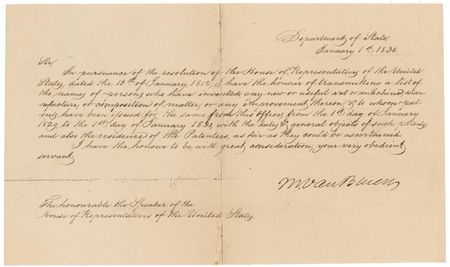 Department of State,
January 1st, 1830.
Sir,
In pursuance of the resolution of the House of Representatives of the United
States, dated the 13th of January 1815, I have the honour of transmitting a list of
the names of persons who have invented any new or useful art or machine, man-
ufacture, or composition of matter, or any improvement thereon, & to whom pat-
ents have been issued for the same from this office, from the 1st day of January
to the 1st day of January with the dates & general objects of such patents,
and also the residences of the Patentees, as far as they could be ascertained.
I have the honour to be with great consideration, your very obedient
servant,
M. Van Buren
The honourable the Speaker of the
House of Representatives of the United States.